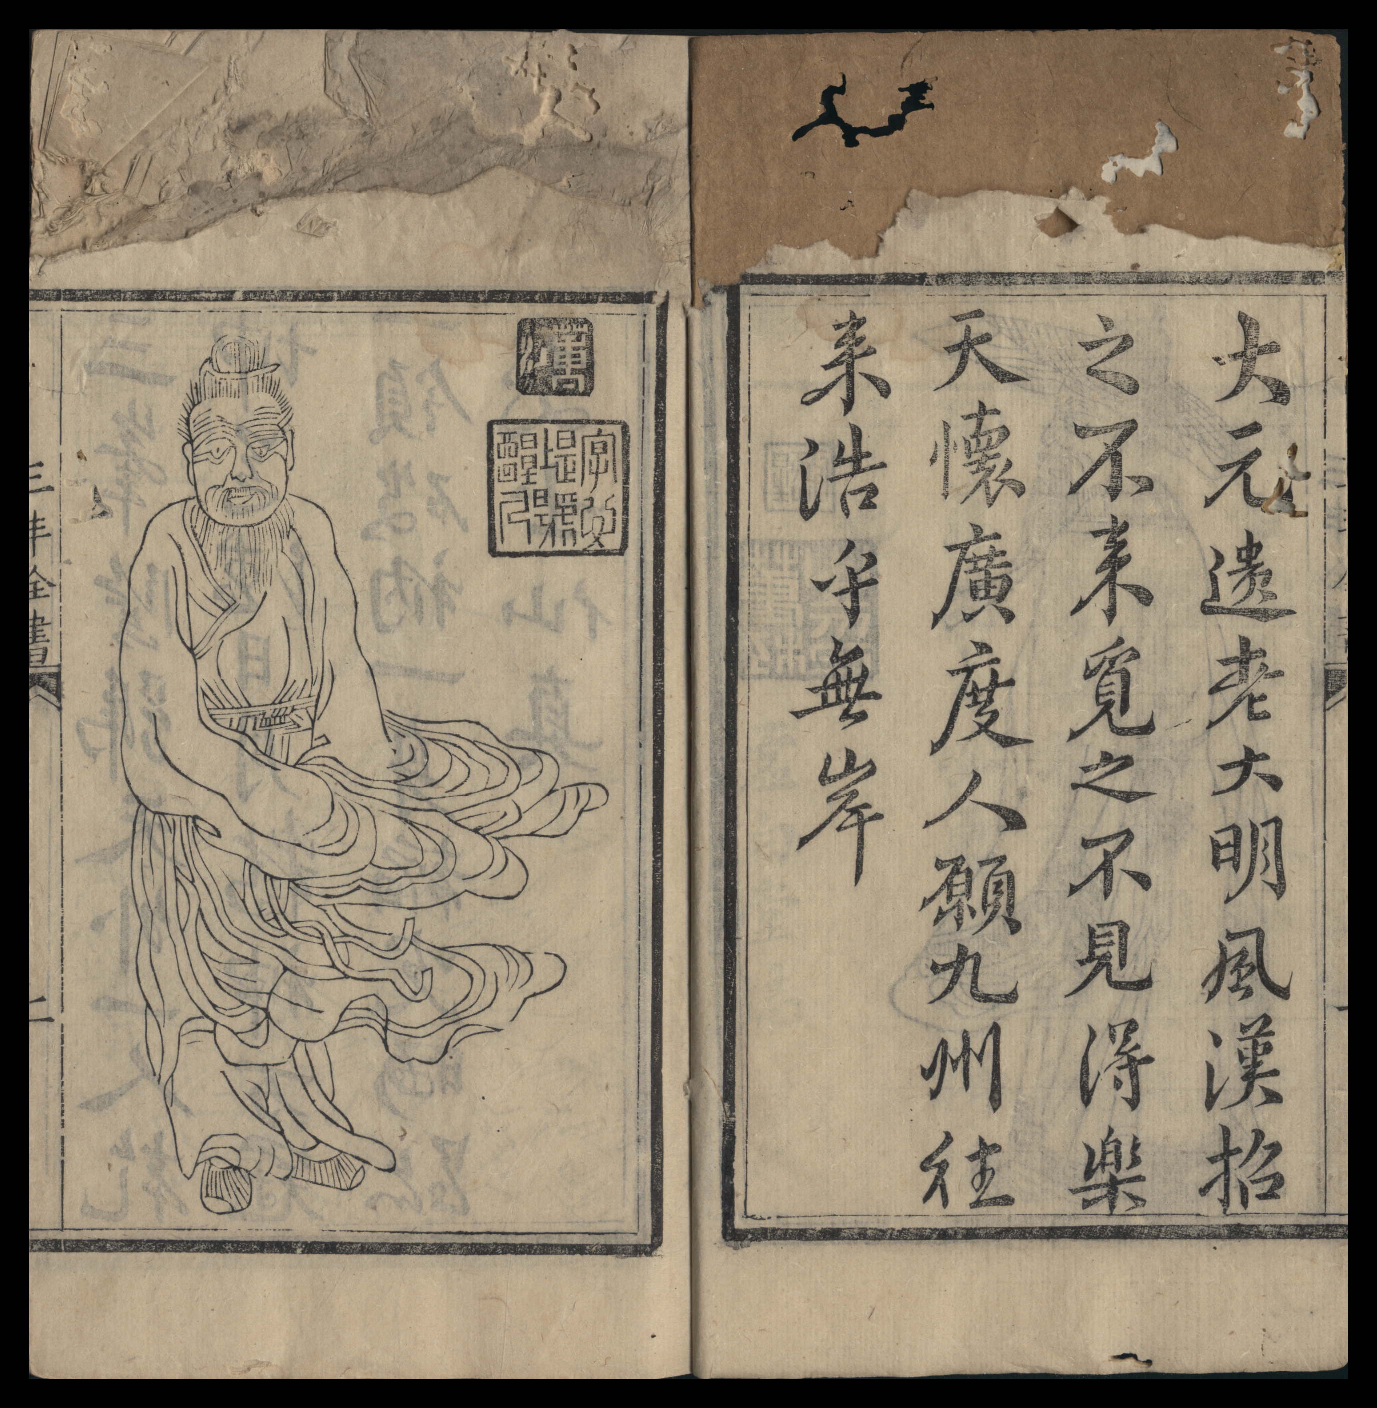 大元遗老大明風漢招
之不来覓之不見得樂
天懷廣度人願九州往
来浩乎無岸
三丰全書